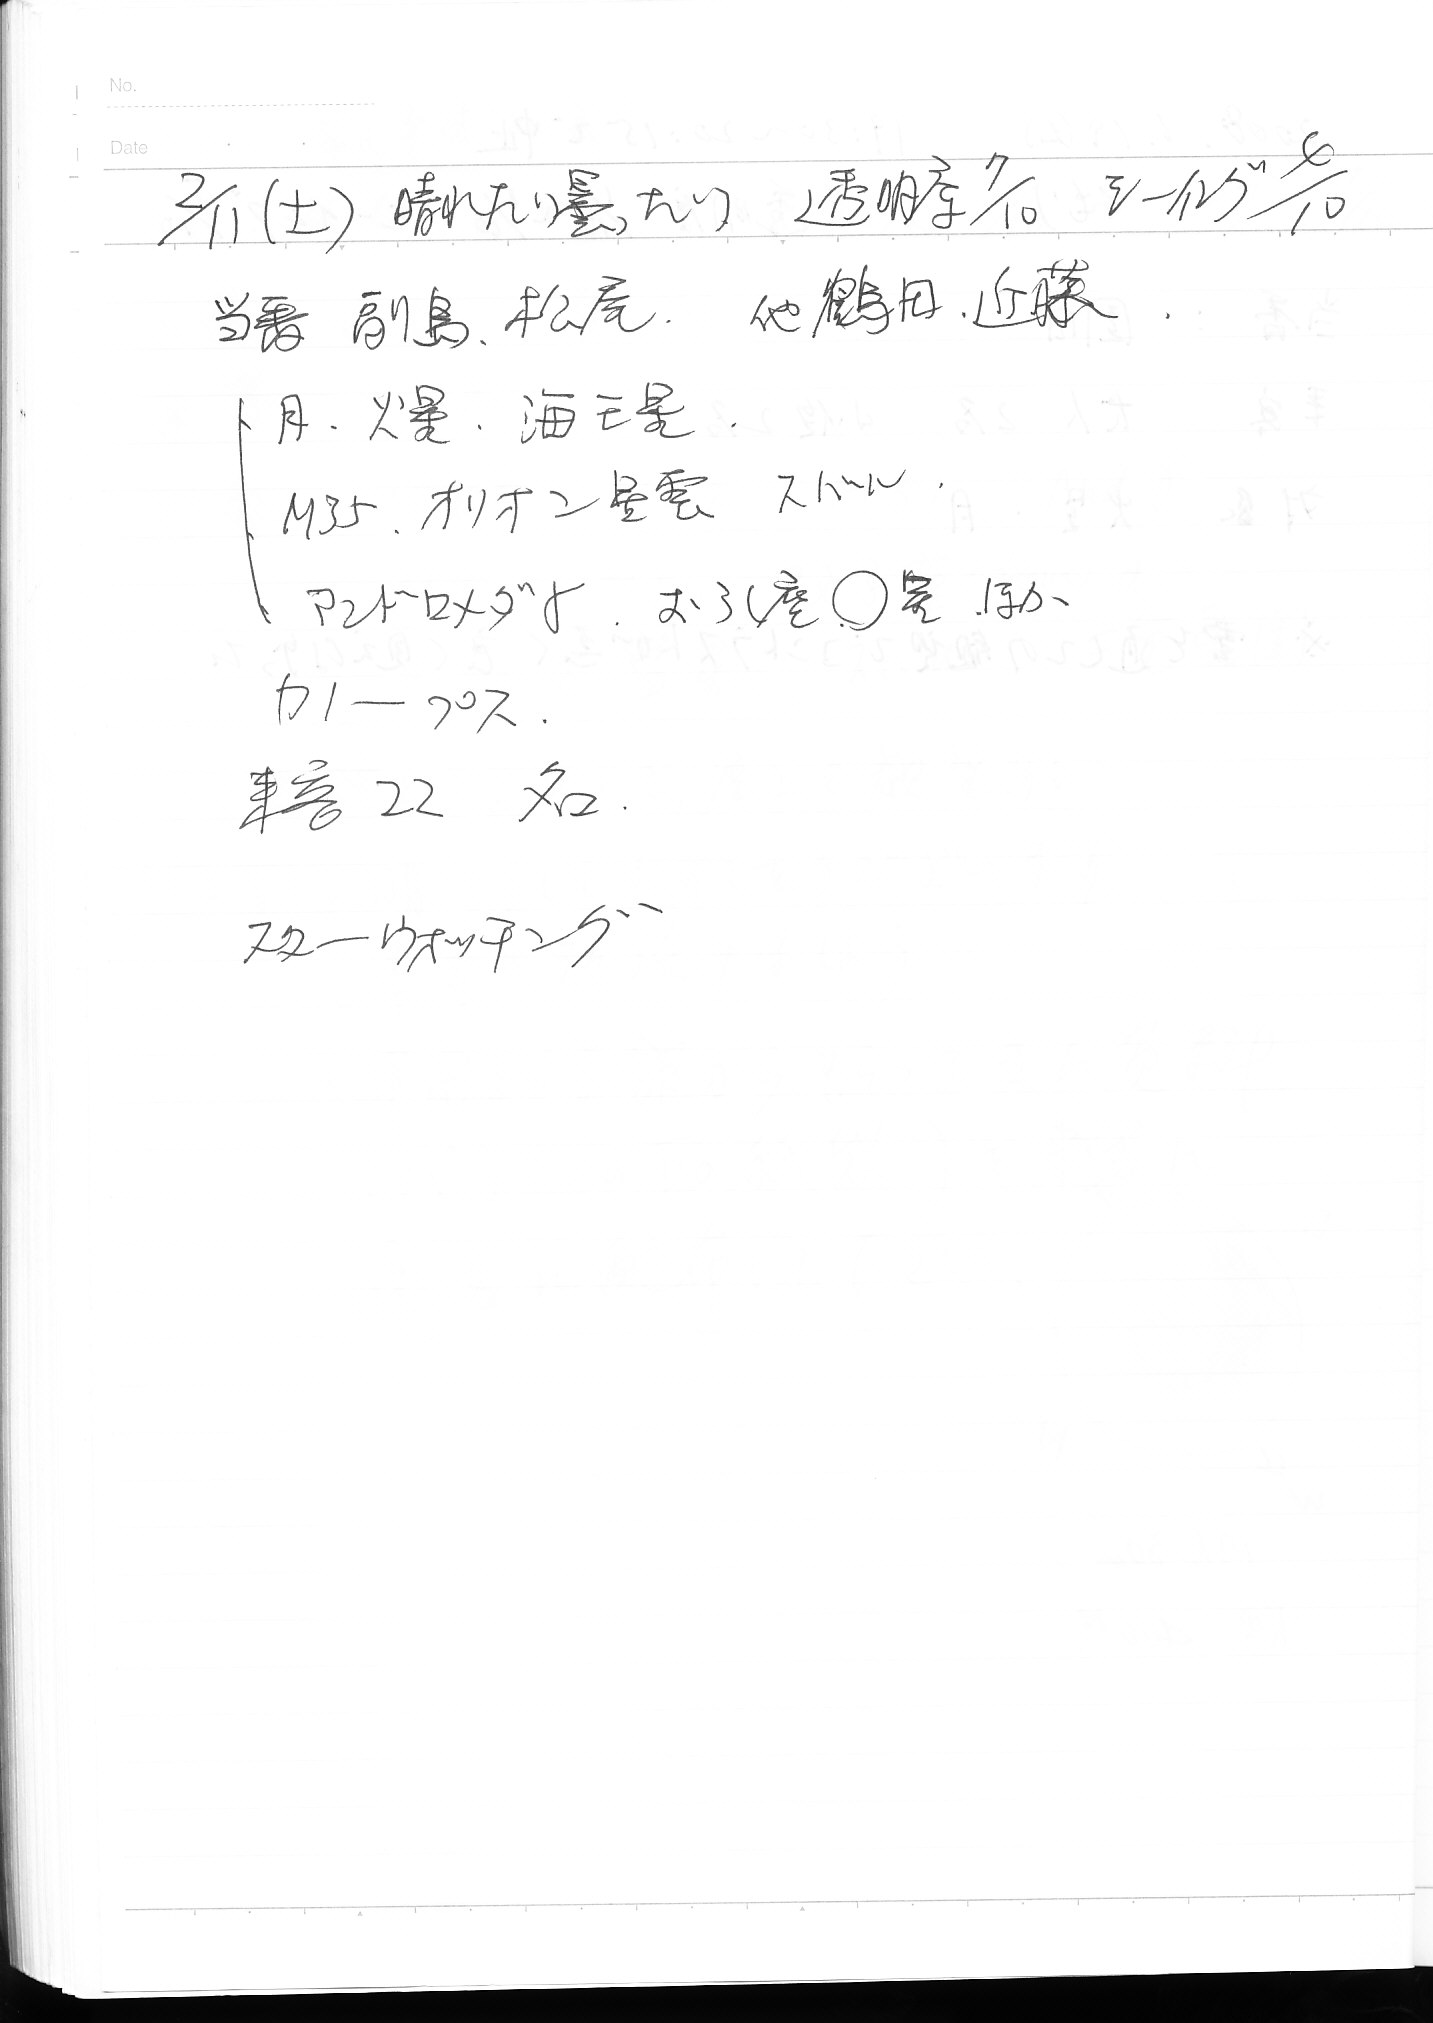 No.
Date
2/11(土) 晴れたり曇ったり 透明度7/10 シーイング6/10
当番 副島、松尾. 他鶴田、近藤.
月、火星、海王星.
M35、オリオン星雲 スバル.
アンドロメダγ、おうし座○星 ほか
カノープス.
来客 22 名.
スターウォッチング